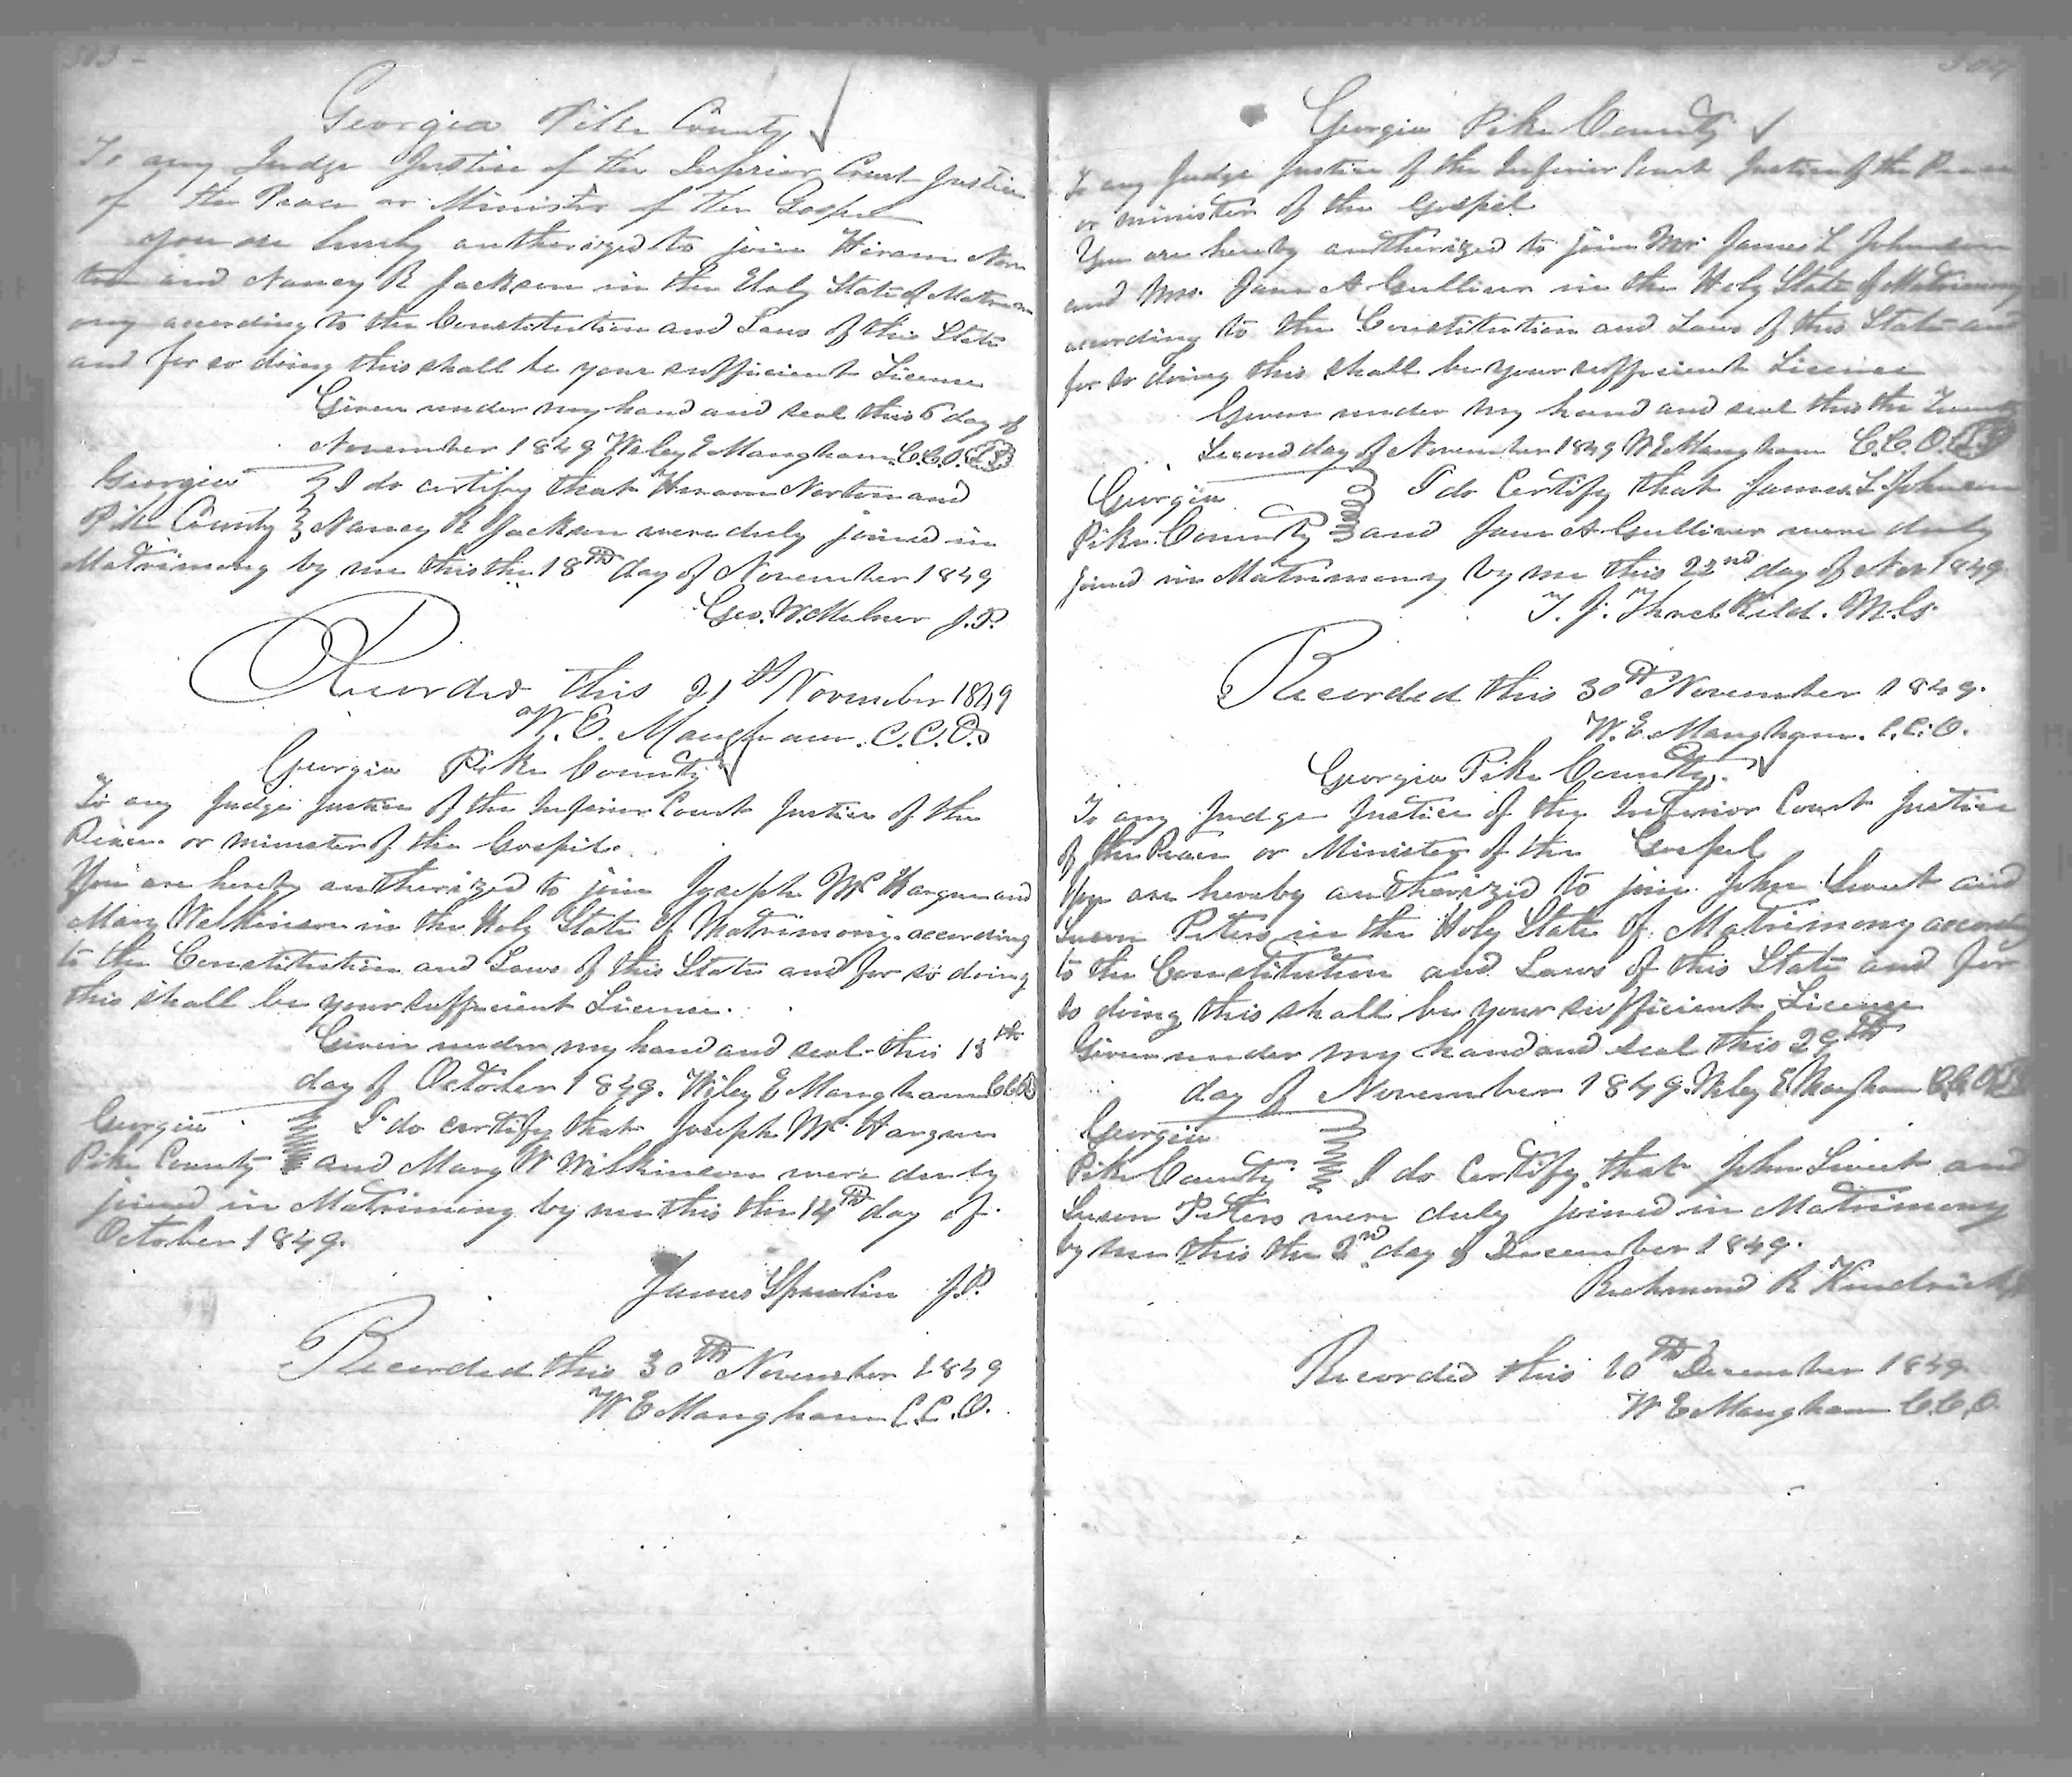 303
Georgia Pike County
To any Judge Justice of the Inferior Court Justice
of the Peace or Minister of the Gospel
you are hereby authorized to join Hiram Nor
ton and Nancy R Jackson in the Holy State of Matrim
ony according to the Constitution and Laws of this State
and for so doing this shall be your sufficient License
Given under my hand and seal this 6 day of
November 1849 Wiley E Mangham C.C.O. L S
Georgia I do certify that Hiram Norton and
Pike County Nancy R Jackson were duly joined in
Matrimony by me this the 18th day of November 1849
Geo. W. Milner J.P.
Recorded this 21st November 1849
W. E. Mangham. C.C.O.
Georgia Pike County
To any Judge Justice of the Inferior Court Justice of the
Peace or minister of the Gospel.
You are hereby authorized to join Joseph Mc Hargue and
Mary Wilkinson in the Holy State of Matrimony according
to the Constitution and Laws of this State and for so doing
this shall be your sufficient License.
Given under my hand and seal this 13th
day of October 1849. Wiley E Mangham CCO
Georgia I do certify that Joseph Mc Hargue
Pike County and Mary W Wilkinson were duly
joined in Matrimony by me this the 14th day of
October 1849.
James Spurlin J.P.
Recorded this 30th November 1849
W E Mangham C.C.O.
304
Georgia Pike County
To any Judge Justice of the Inferior Court Justice of the Peace
or minister of the Gospel
You are hereby authorized to join Mr James L Johnson
and Mrs. Jane A Gulliver in the Holy State of Matrimony
according to the Constitution and Laws of this State and
for so doing this shall be your sufficient License
Given under my hand and seal this the Twenty
Second day of November 1849 W E Mangham C.C.O. L S
Georgia I do Certify that James L Johnson
Pike County and Jane A Gulliver were duly
joined in Matrimony by me this 22nd day of Nov 1849
T. J. M.G.
Recorded this 30th November 1849.
W. E. Mangham. C.C.O.
Georgia Pike County.
To any Judge Justice of the Inferior Court Justice
of the Peace or Minister of the Gospel
You are hereby authorized to join John Sweet and
Susan Peters in the Holy State of Matrimony accordg
to the Constitution and Laws of this State and for
so doing this shall be your sufficient License
Given under my hand and seal this 29th
day of November 1849. Wiley E Mangham C.C.O. L S
Georgia
Pike County I do Certify that John Sweet and
Susan Peters were duly joined in Matrimony
by me this the 2nd day of December 1849.
Richmond R Kendrick
Recorded this 10th December 1849
W E Mangham C.C.O.